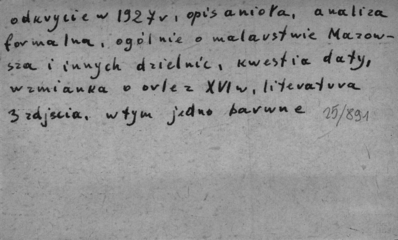 odkrycie w 1927 r, opis anioła, analiza
formalna, ogólnie o malarstwie Mazow-
sza i innych dzielnic, kwestia daty,
wzmianka o orle z XVI w, literatura
3 zdjęcia, w tym jedno barwne 25/891